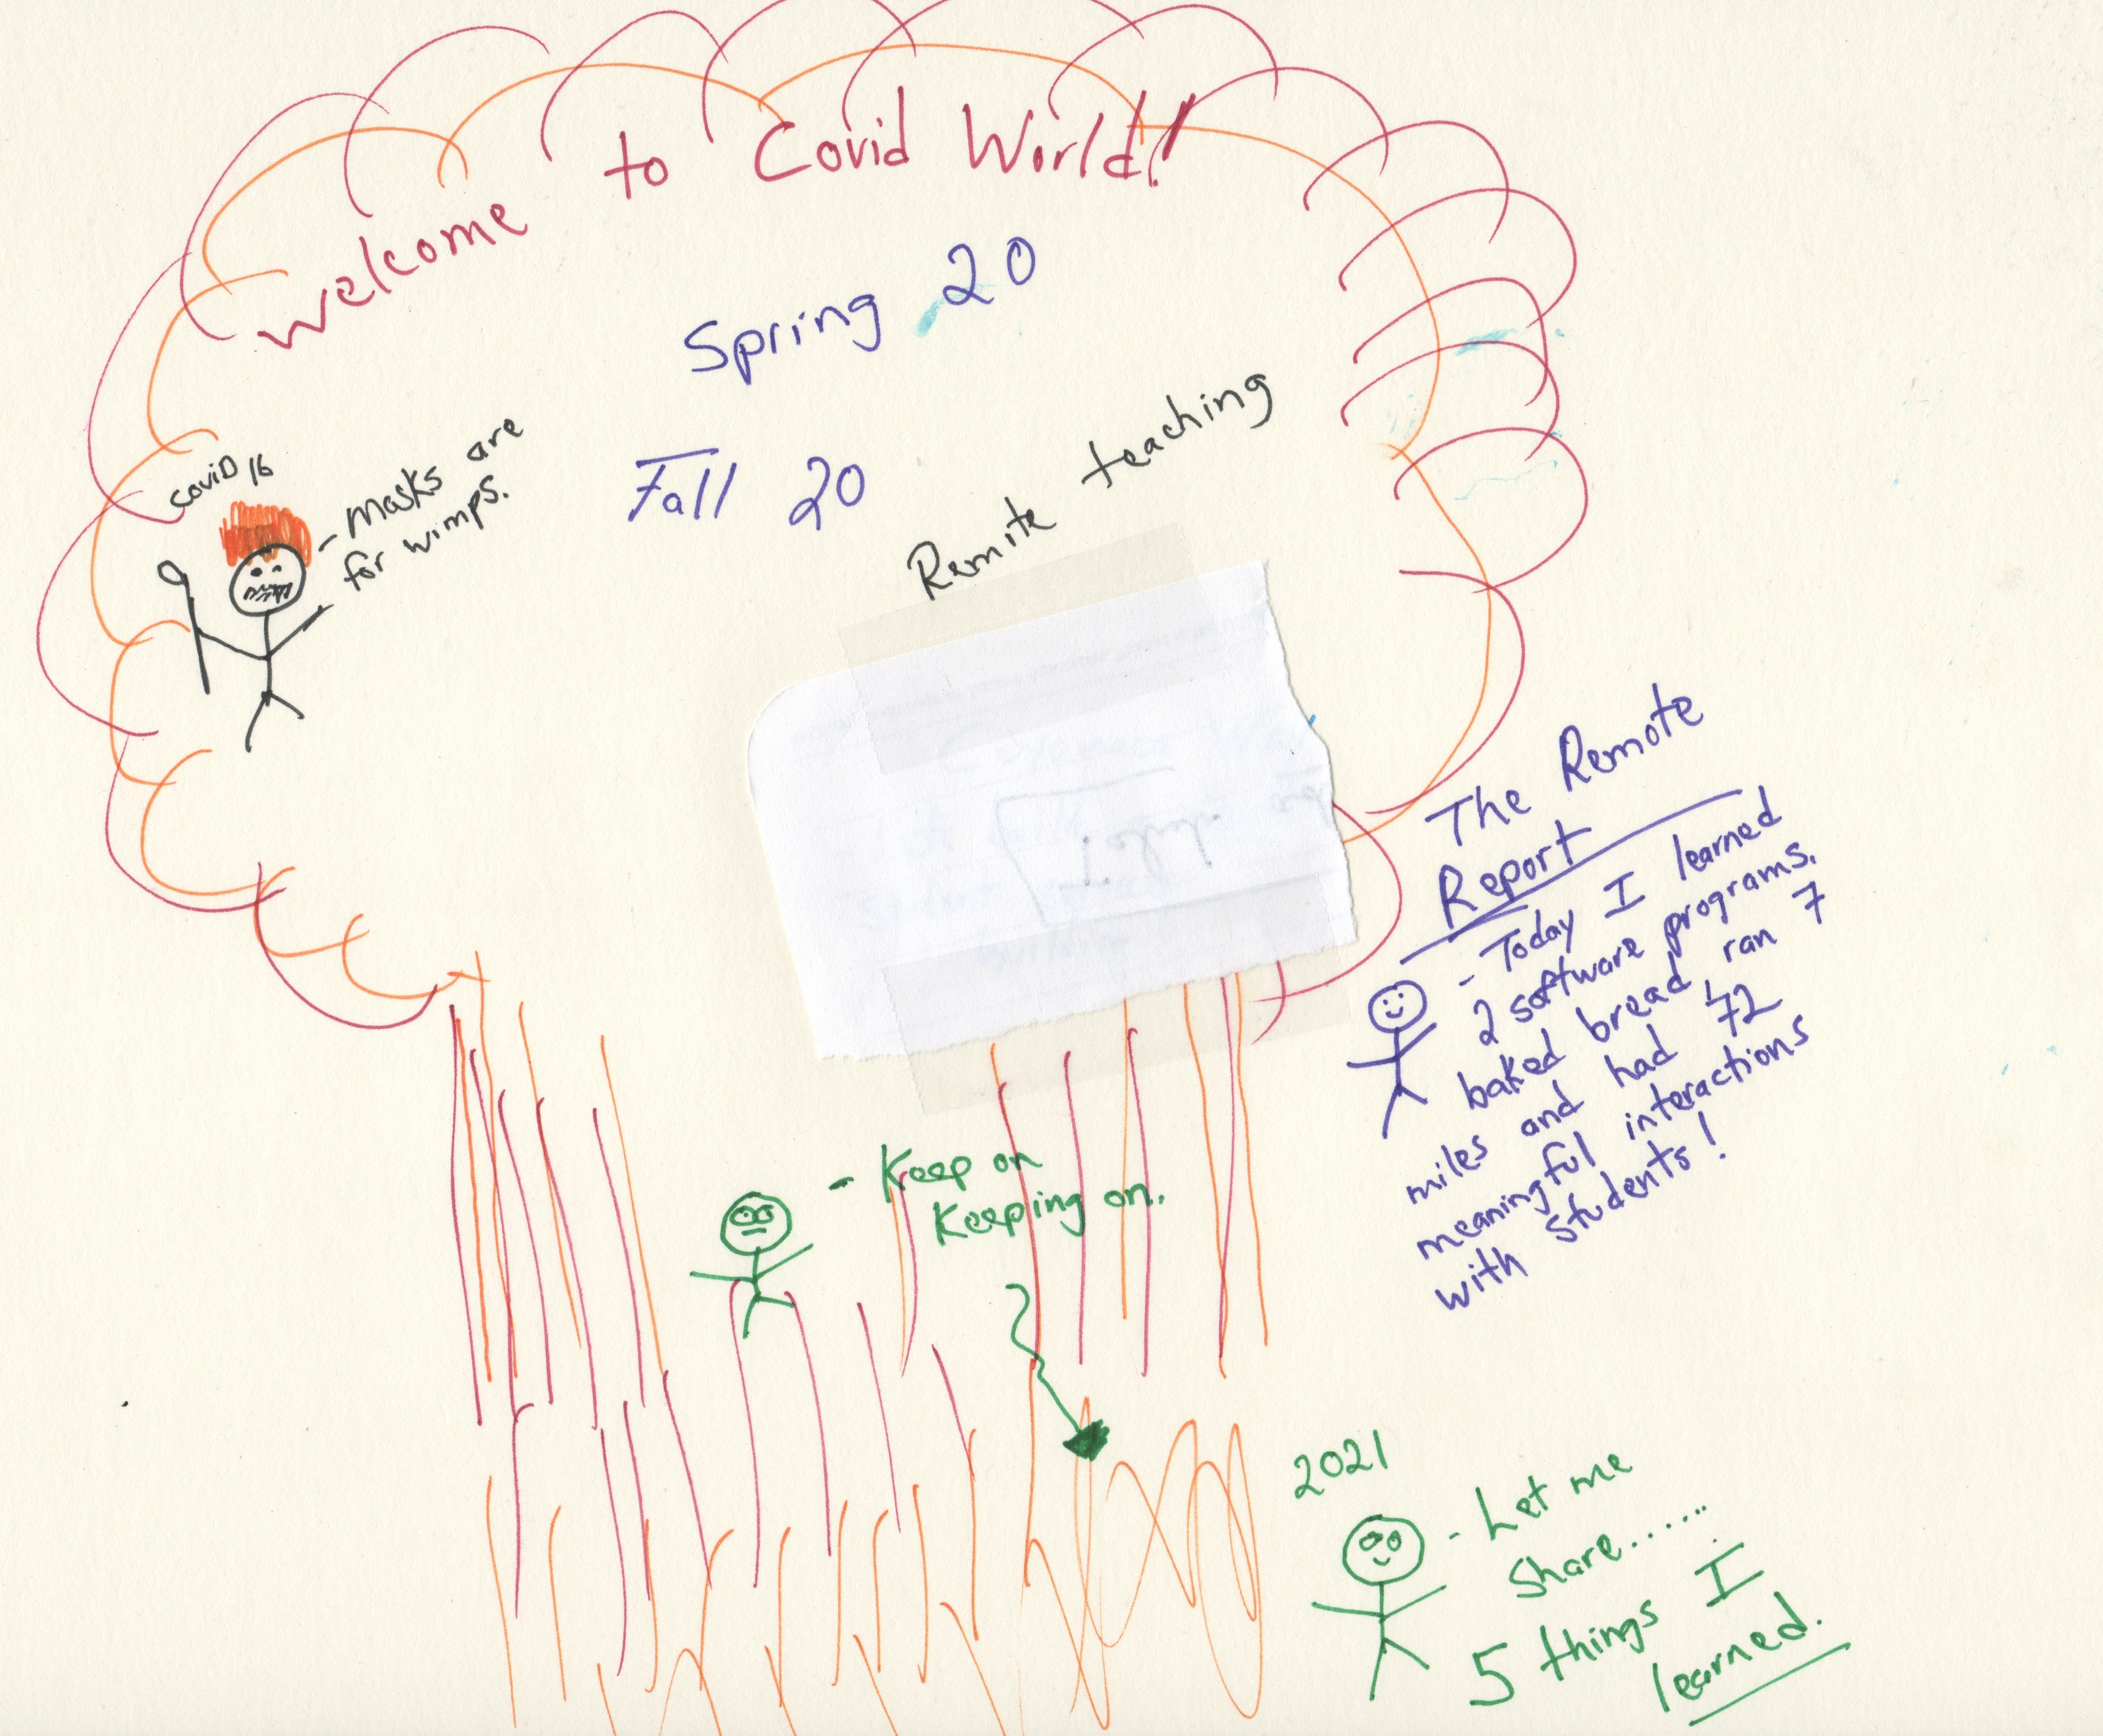 Welcome to Covid World!
Spring 20
Fall 20
Remote teaching
COVID 16
- Masks are
for wimps.
The Remote
Report
- Today I learned
2 software programs,
baked bread, ran 7
miles and had 72
meaningful interactions
with students!
- Keep on
Keeping on.
2021
- Let me
Share......
5 things I
learned.